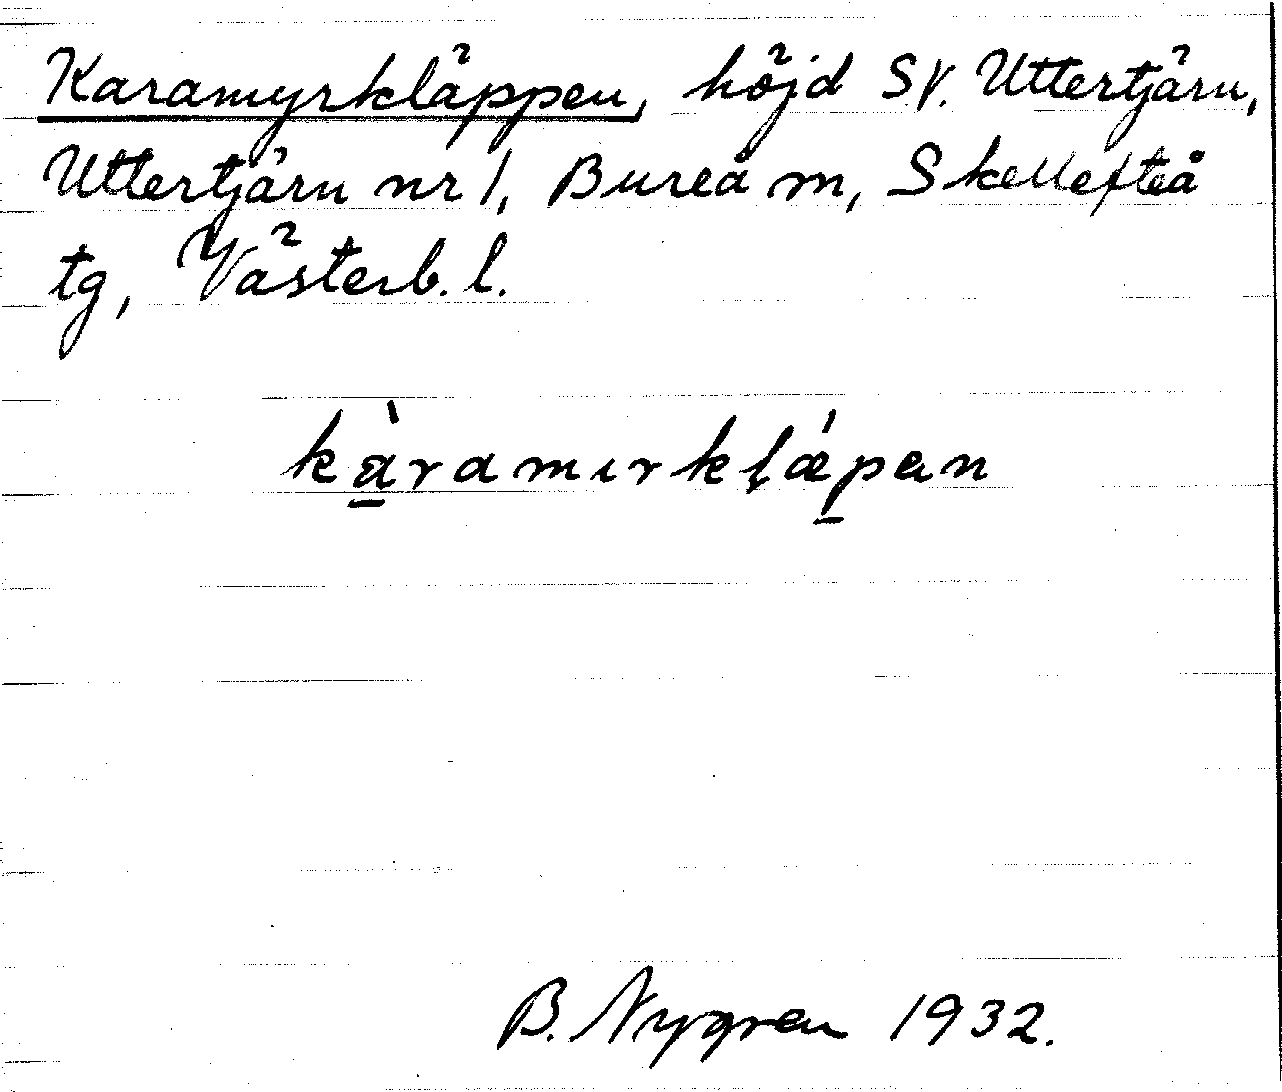 Karamyrkläppen, höjd SV. Uttertjärn,
Uttertjärn nr 1, Bureå m, Skellefteå
tg, Västerb. l.
kàramɪrkḷǽpen
B. Nygren 1932.